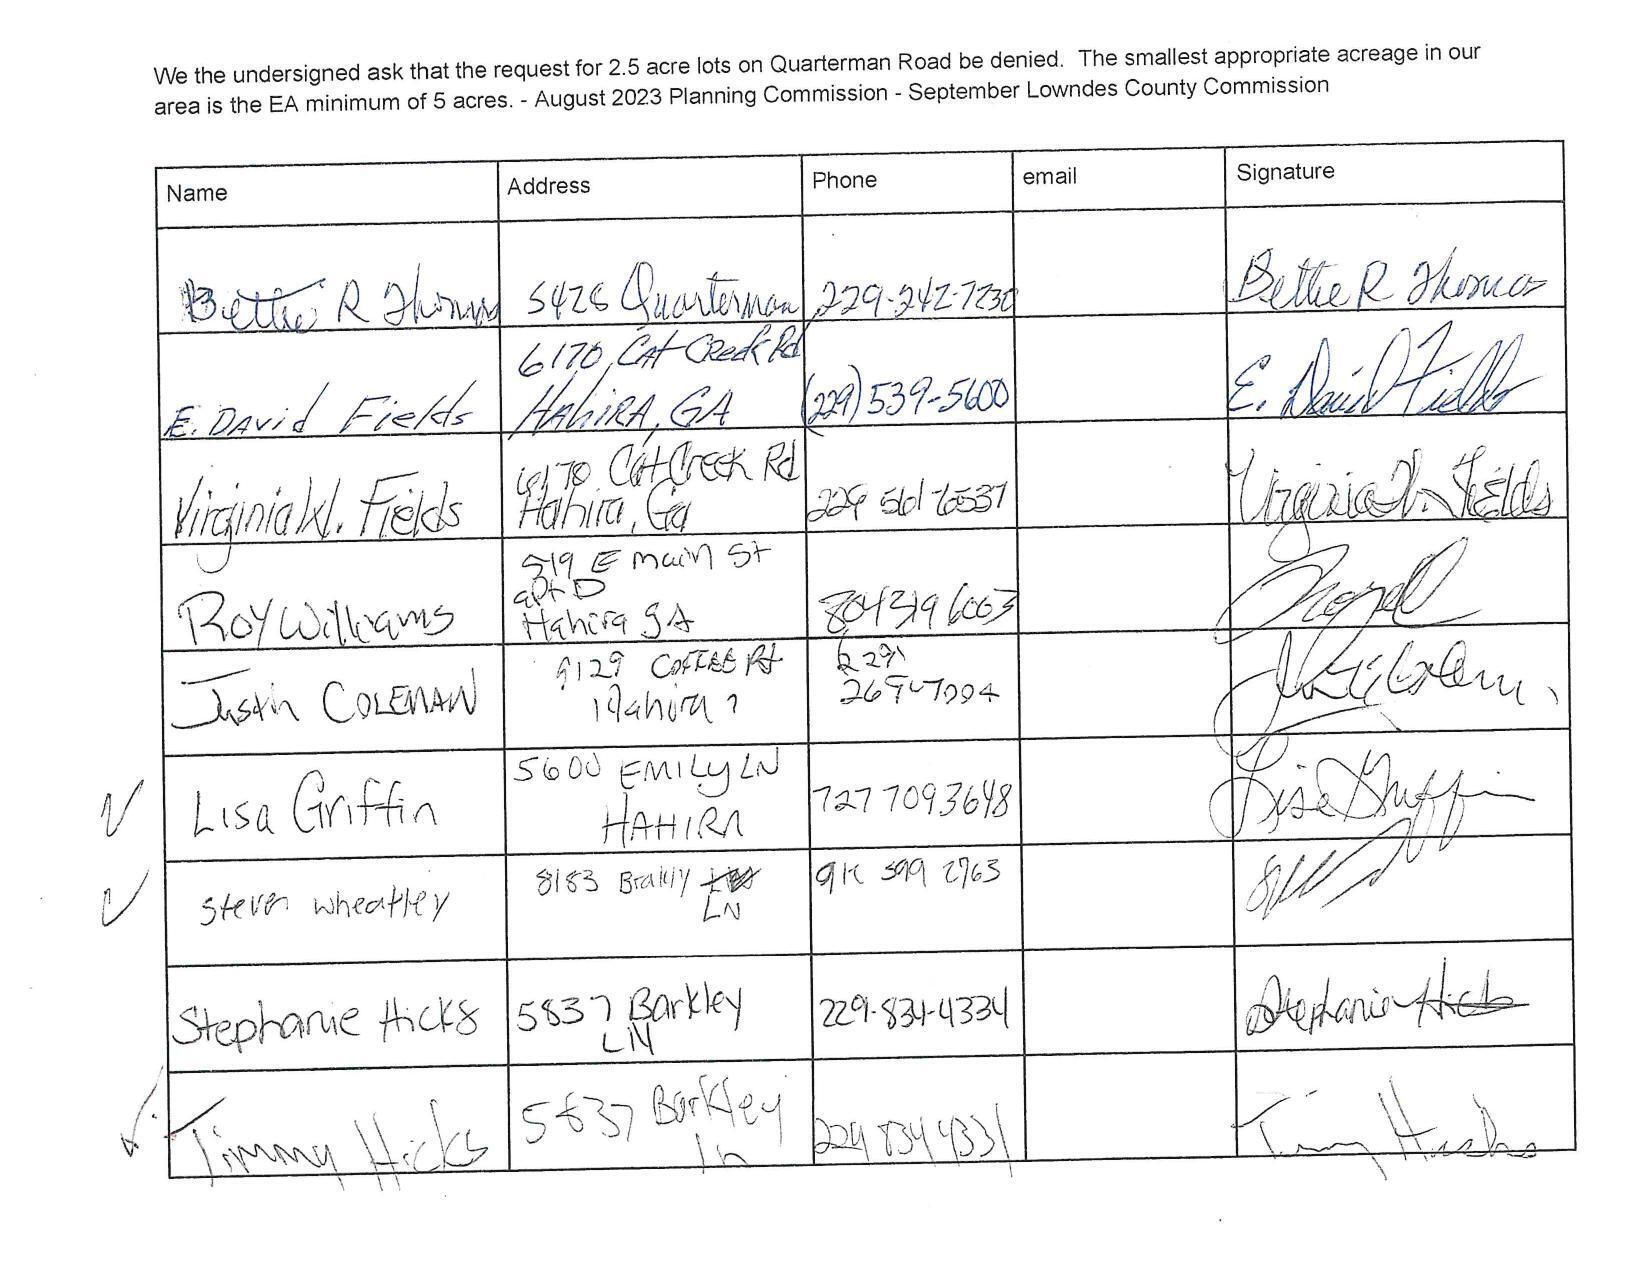 We the undersigned ask that the request for 2.5 acre lots on Quarterman Road be denied. The smallest appropriate acreage in our
area is the EA minimum of 5 acres. - August 2023 Planning Commission - September Lowndes County Commission
Name Address Phone email Signature
Bettie R Thomas 5428 Quarterman 229-242-7230 Bettie R Thomas
6170 Cat Creek Rd
E. David Fields HAHIRA, GA (229) 539-5600 E. David Fields
6170 Cat Creek Rd
Virginia W. Fields Hahira, Ga 229 561 6537 Virginia W. Fields
519 E main St
apt D
Roy Williams Hahira gA 804 319 6003
9129 COFFEE Rd 229
Justin COLEMAN Hahira 269-7094
5600 EMILy LN
Lisa Griffin HAHIRA 727 709 3648 Lisa Griffin
8183 599 2763
Steven Wheatley LN
Stephanie Hicks 5837 Barkley 229-834-4334 Stephanie Hicks
LN
Timmy Hicks 5837 Barkley 229 834 4331 Timmy Hicks
Ln